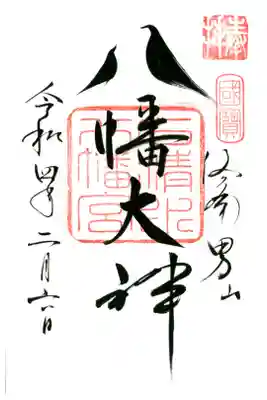 奉拝
國寶
洛南 男山
八幡大神
石清水
八幡宮
令和四年二月六日